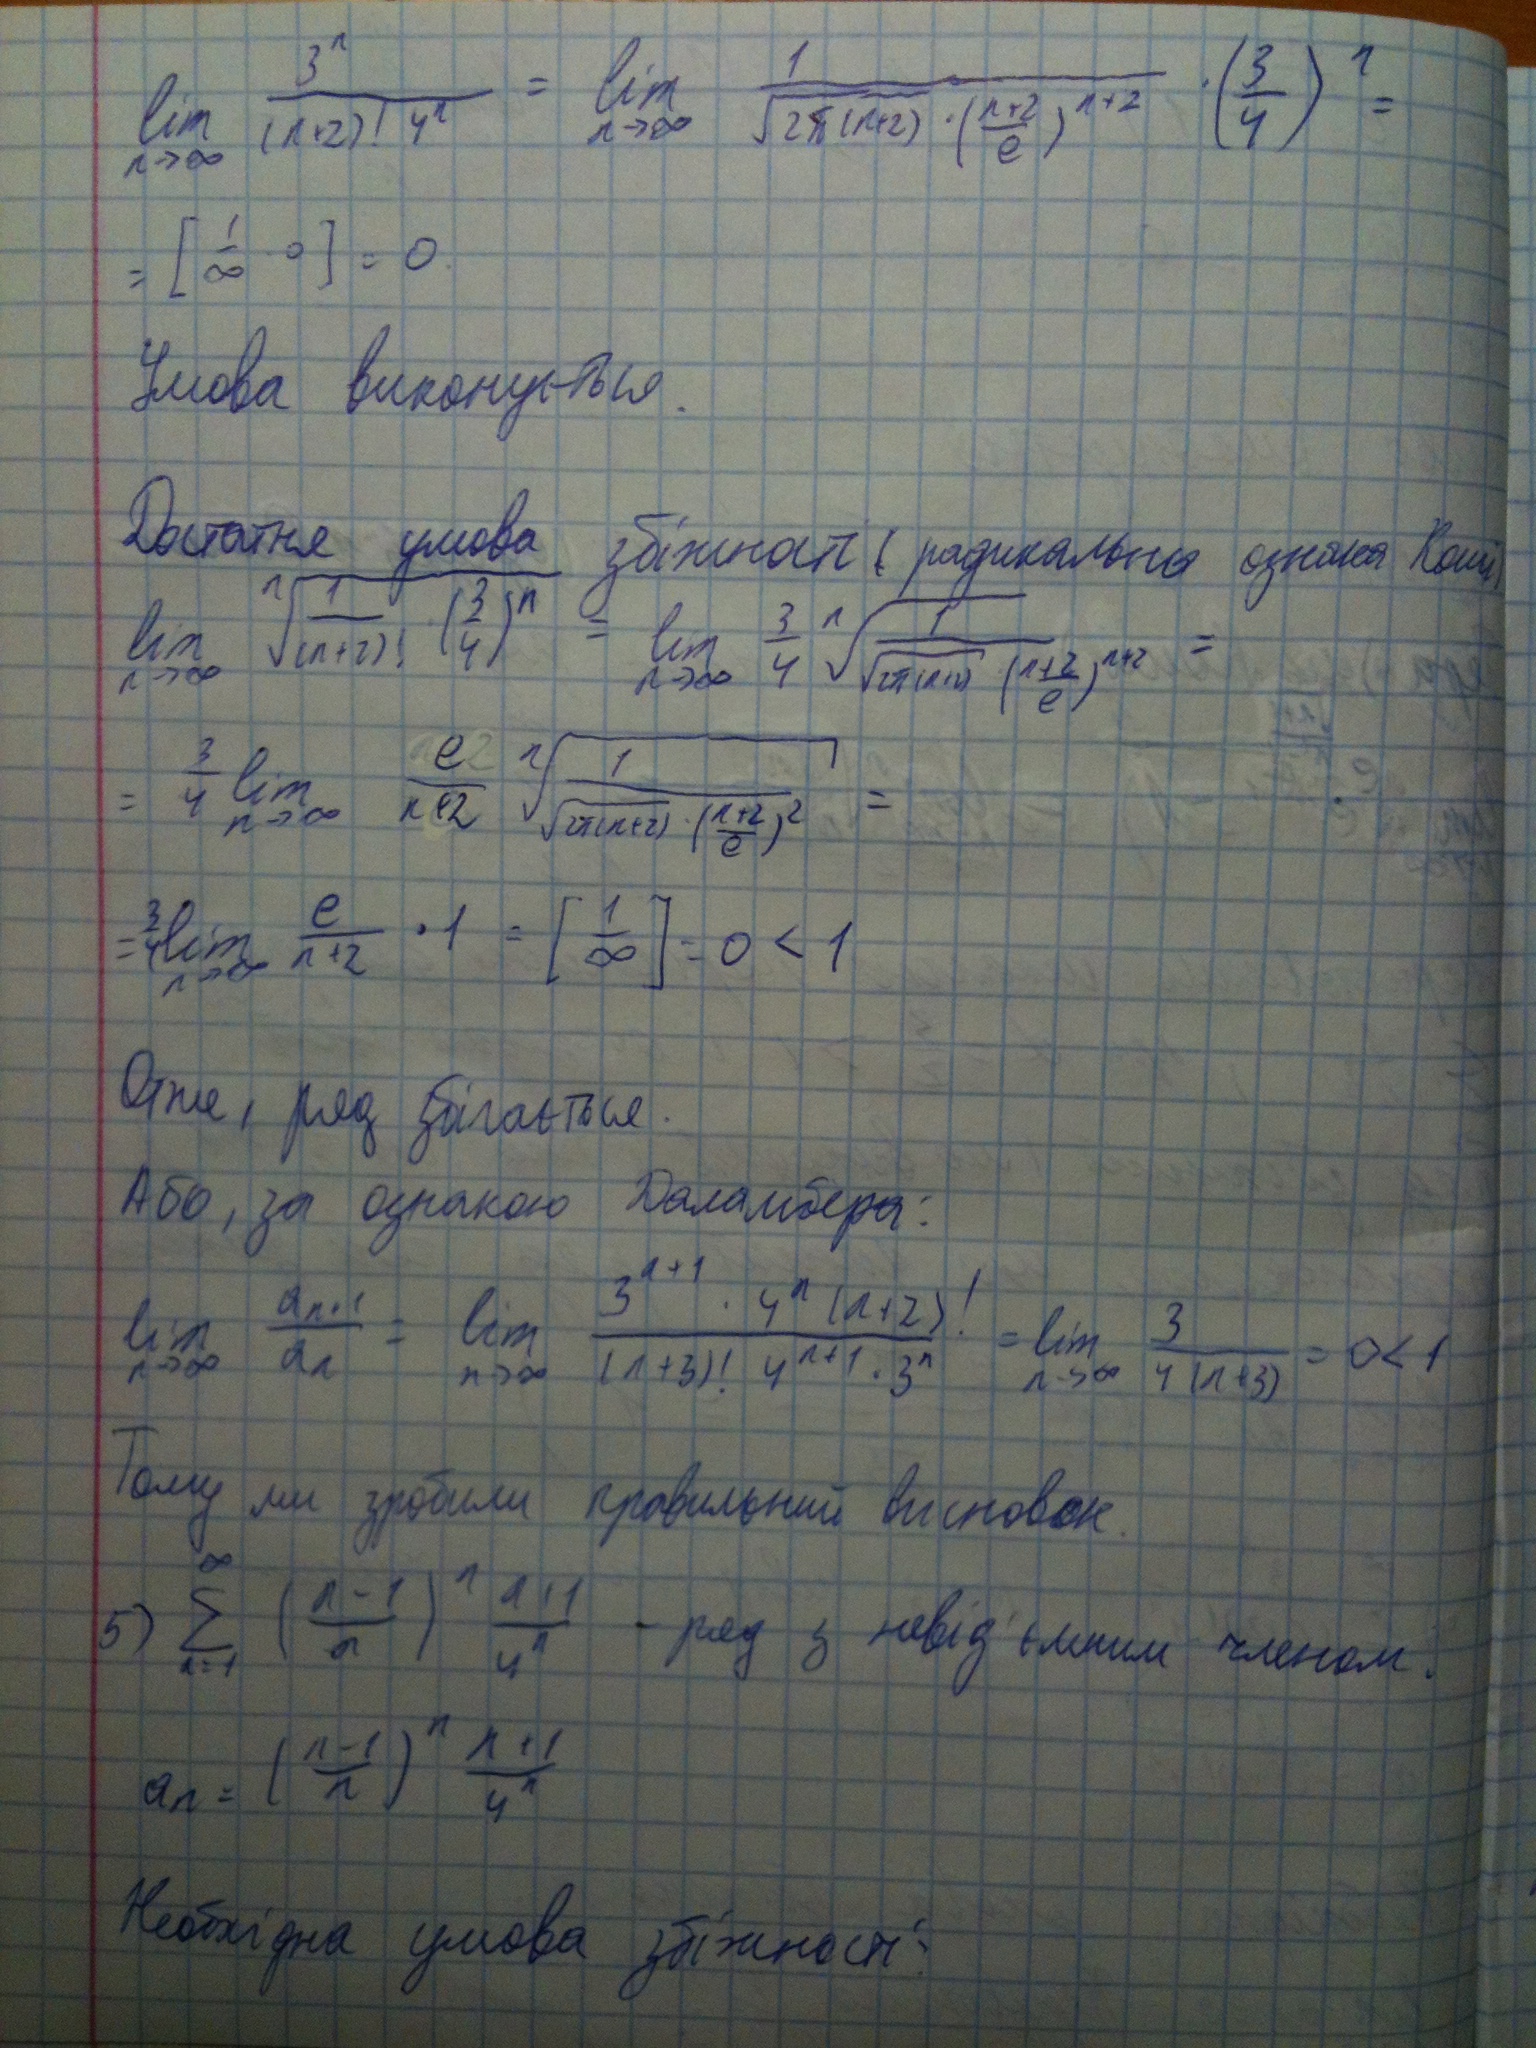 lim n→∞ 3^n / ((n+2)! 4^n) = lim n→∞ 1 / (√(2π(n+2)) · ((n+2)/e)^(n+2)) · (3/4)^n =
= [1/∞ · 0] = 0.
Умова виконується.
Достатня умова збіжності (радикальна ознака Коші)
lim n→∞ ⁿ√(1/(n+2)! · (3/4)^n) = lim n→∞ 3/4 ⁿ√(1 / (√(2π(n+2)) · ((n+2)/e)^(n+2))) =
= 3/4 lim n→∞ e/(n+2) ⁿ√(1 / (√(2π(n+2)) · ((n+2)/e)^2)) =
= 3/4 lim n→∞ e/(n+2) · 1 = [1/∞] = 0 < 1
Отже, ряд збігається.
Або, за ознакою Даламбера:
lim n→∞ a_(n+1)/a_n = lim n→∞ (3^(n+1) · 4^n (n+2)!) / ((n+3)! 4^(n+1) · 3^n) = lim n→∞ 3/(4(n+3)) = 0 < 1
Тому ми зробили правильний висновок.
5) ∑ n=1 ∞ ((n-1)/n)^n (n+1)/4^n - ряд з невід'ємним членом.
a_n = ((n-1)/n)^n (n+1)/4^n
Необхідна умова збіжності: